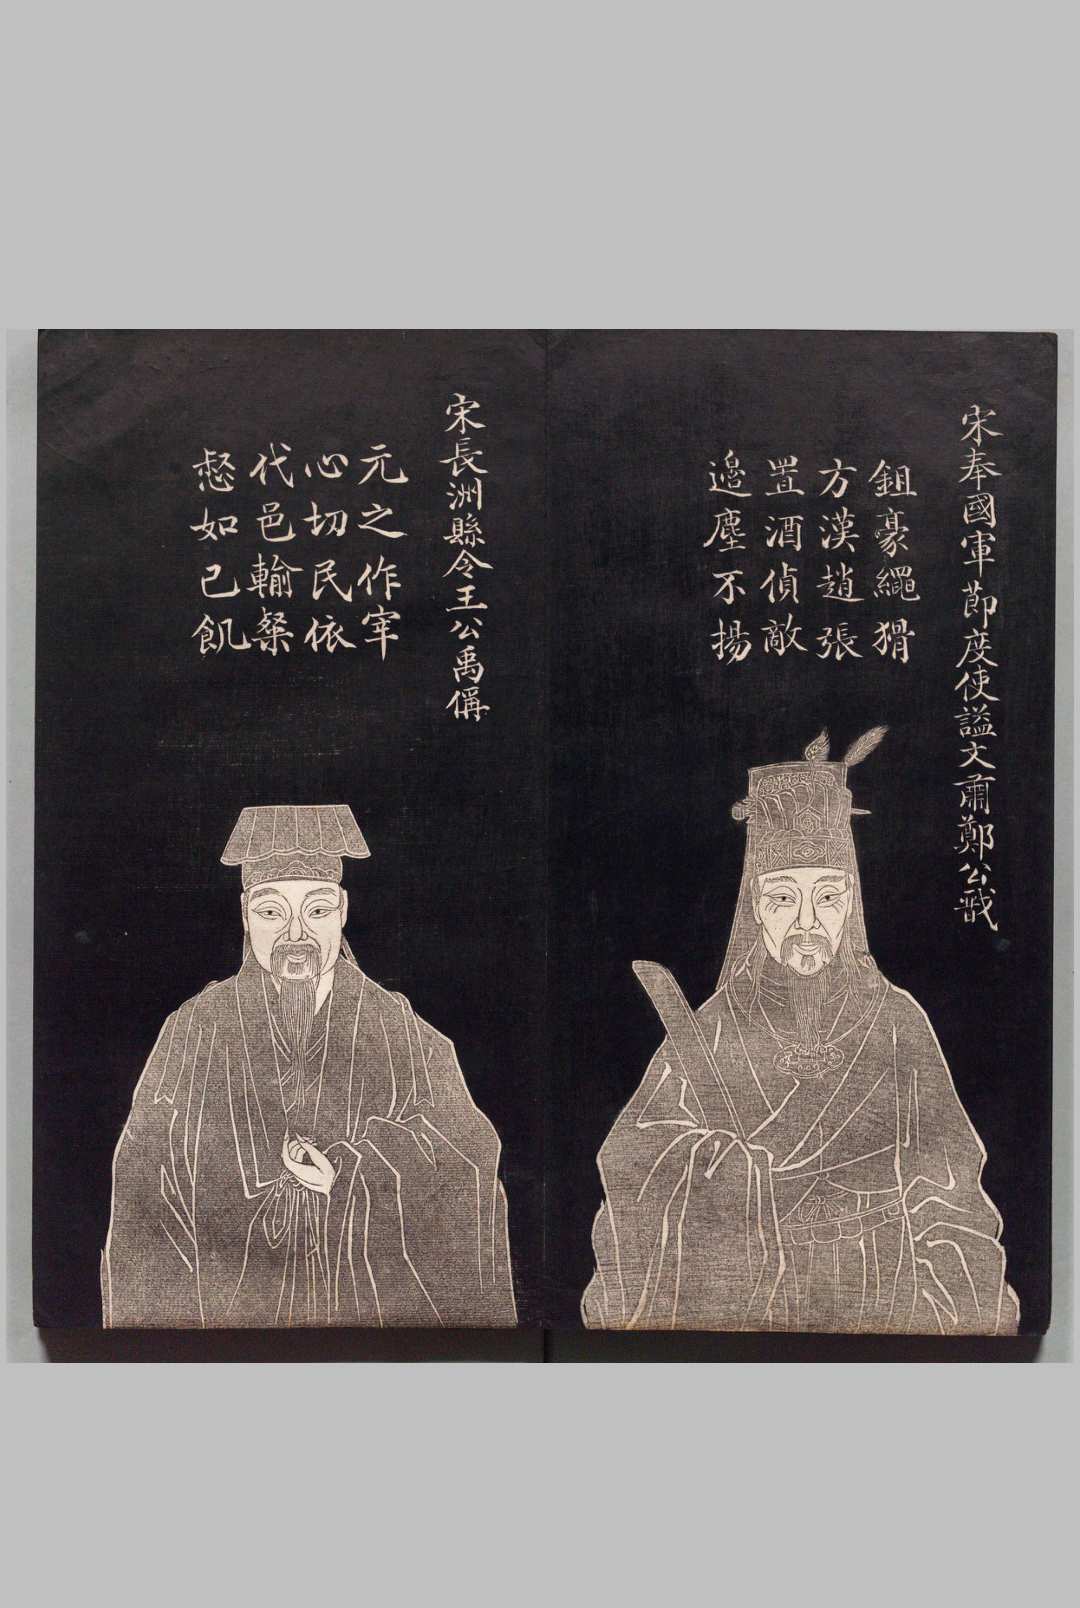 宋奉國軍節度使謚文肅鄭公戩
鉏豪繩猾
方漢趙張
置酒偵敵
邉塵不揚
宋長洲縣令王公禹偁
元之作宰
心切民依
代邑輸粲
愁如己飢